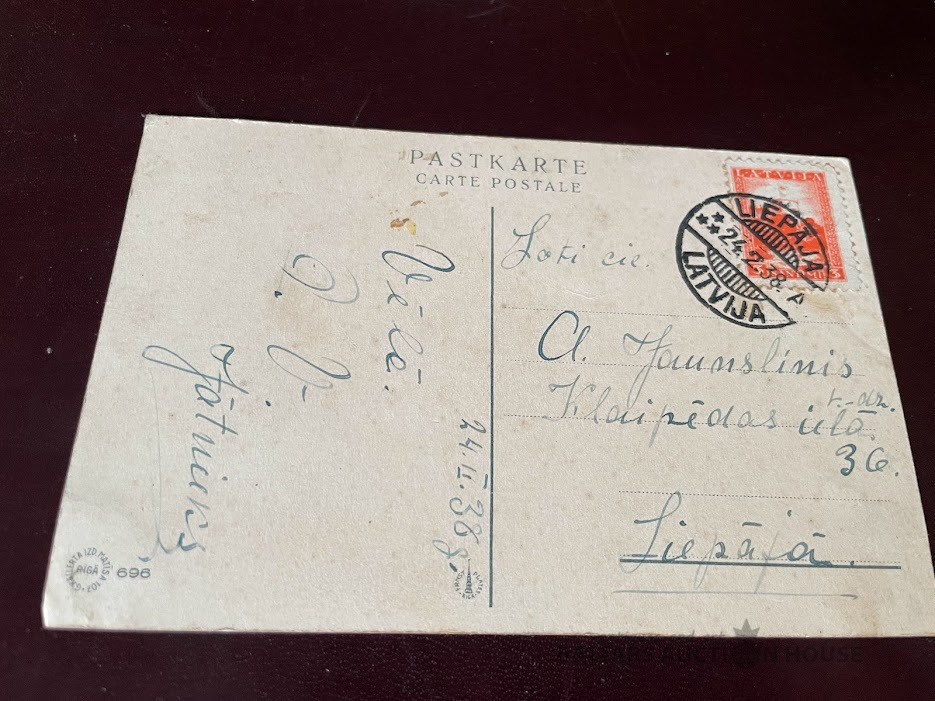 PASTKARTE
CARTE POSTALE
Vēlē.
Jātnieks
24.II.38g.
696
RĪGĀ
LATVIJA
LIEPĀJA
24.2.38. A
LATVIJA
Ļoti cie.
A. Jaunslinis
k-dze.
Klaipēdas ielā
36.
Liepājā.
AUCTION HOUSE